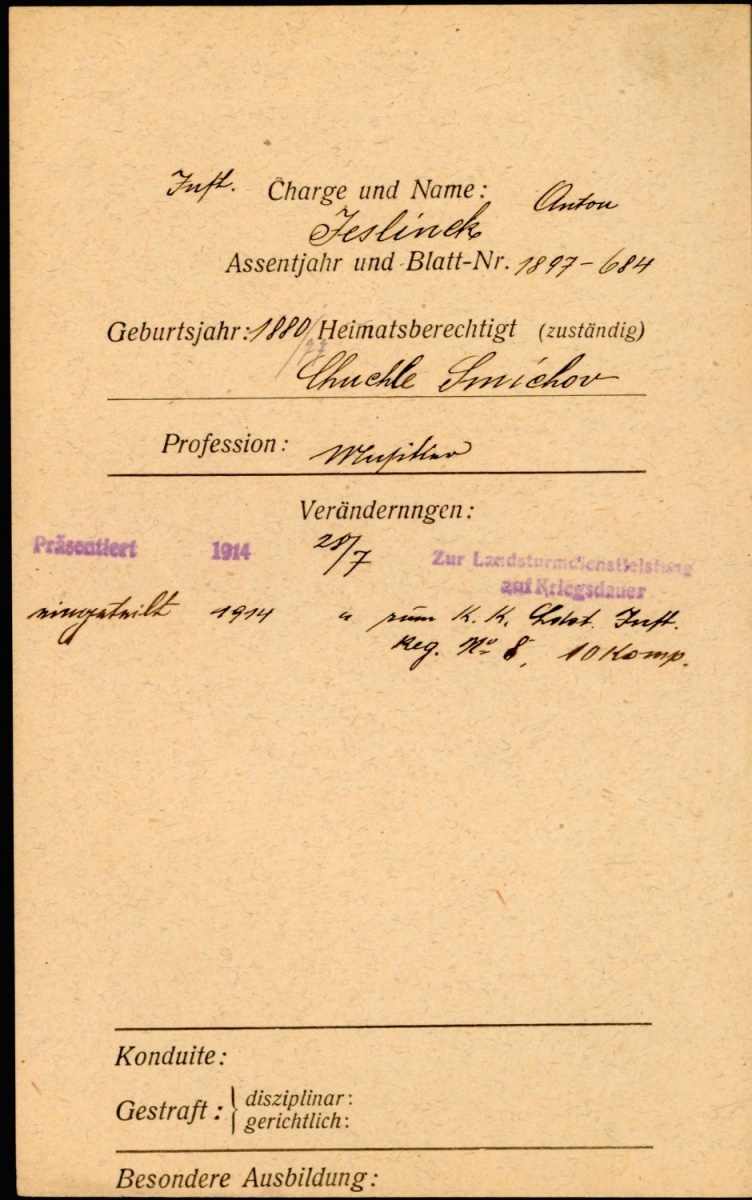 Inft. Charge und Name: Anton
Jeslinek
Assentjahr und Blatt-Nr. 1897-684
Geburtsjahr: 1880 Heimatsberechtigt (zuständig)
Chuchle Smíchov
Profession: Musiker
Verändernngen:
Präsentiert 1914 28/7 Zur Landsturmdienstleistung
auf Kriegsdauer
eingeteilt 1914 " zum K. K. Ldst. Inft.
Reg. No 8, 10 Komp.
Konduite:
Gestraft: disziplinar:
gerichtlich:
Besondere Ausbildung: